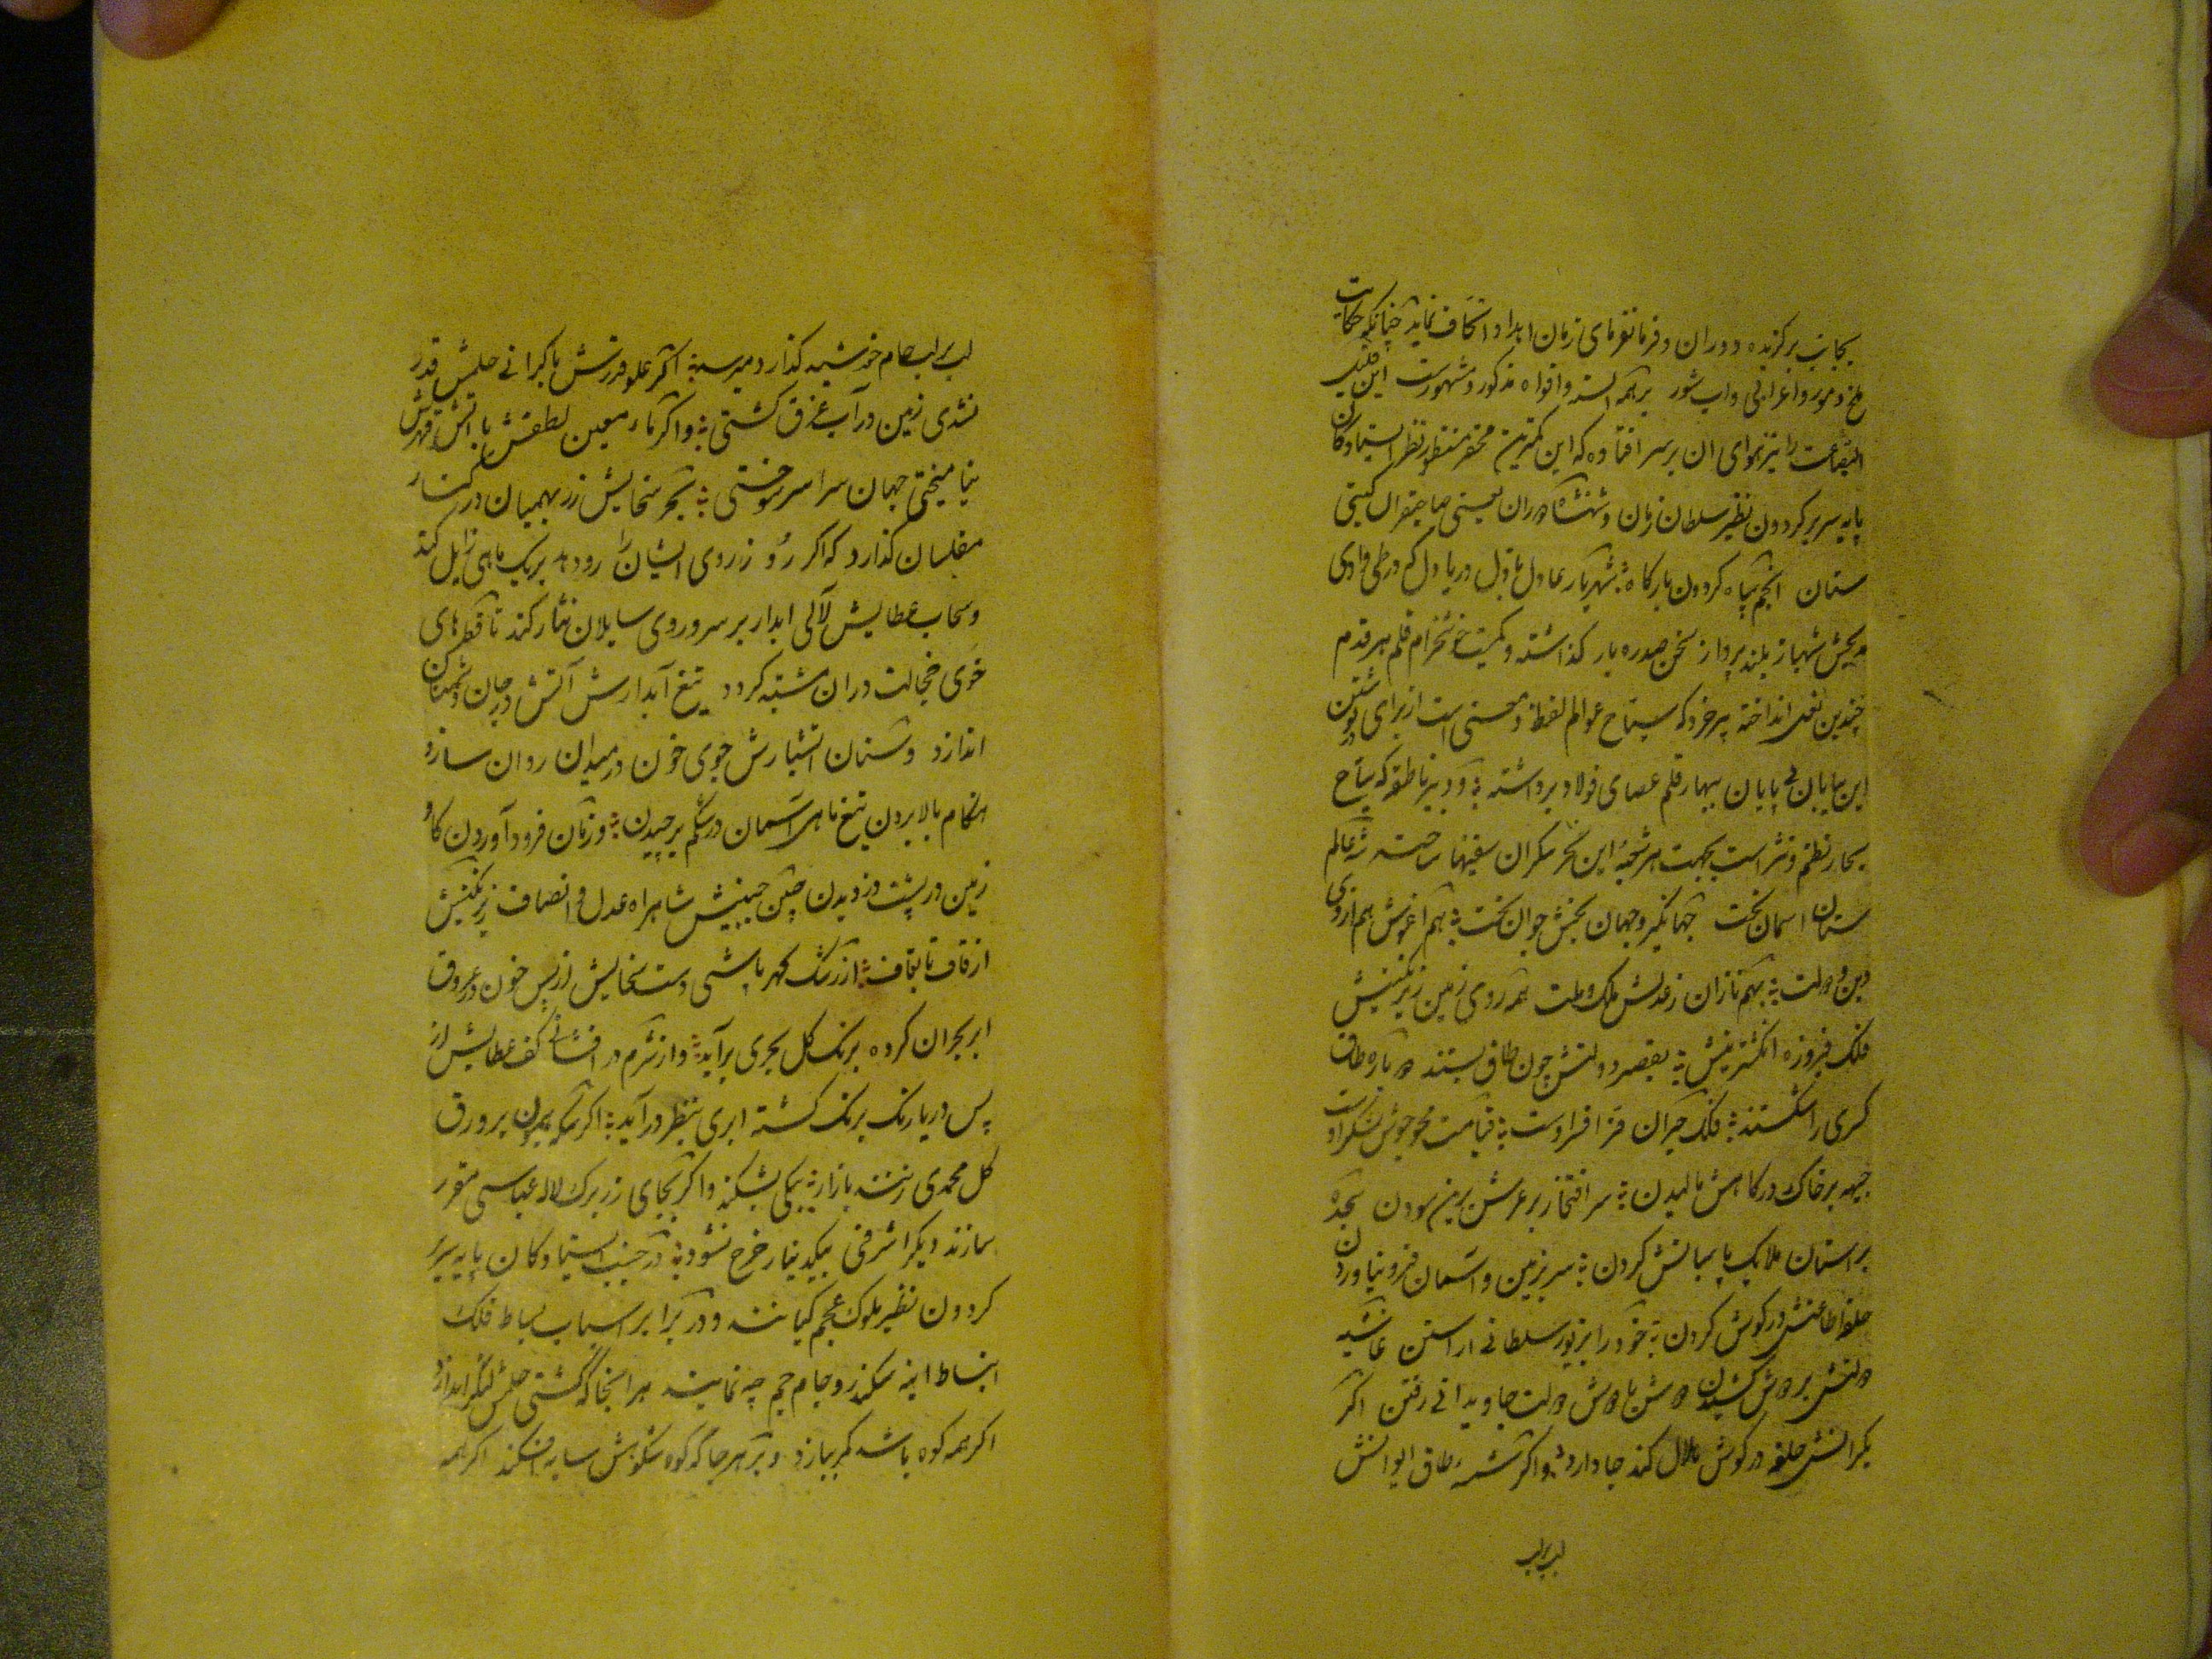 بجانب برکزیده دوران و فرمانفرمای زمان اهدا و اتحاف نماید چنانکه حکایت
ملخ و مور و اعرابی و اب شور بر همه السنه و افواه مذکور و مشهورست این قلیل
البضاعت را نیز هوای ان بر سر افتاده که این کمترین محقر منظور نظر ایستادکان
پایه سریر کردون نظیر سلطان زمان و شهنشاه دوران یعنی صاحبقران کیتی
ستان انجم سپاه کردون بارکاه شهریار عادل باذل دریا دل که در طی وادی
مدیحش شهباز بلند پرواز سخن صد ره بار کذاشته و کمیت خوشخرام قلم هر قدم
چندین نعل انداخته پیر خرد که سیاح عوالم لفظ و معنی است از برای نوشتن
این بیابان بی پایان بیهار قلم عصای فولاد برداشته و دبیر ناطقه که سیاح
بحار نظم و نثر است بجهت هر شعبهٔ این بحر بیکران سفینها ساخته شه عالم
ستان اسمان تخت جهانکیر و جهان بخش جوان بخت هم اغوش هم ابروی
دین و دولت بهم نازان ز عدلش ملک و ملت همه روی زمین زیر نکینش
فلک فیروزه انکشترینش بقصر دولتش چون طاق بستند دوباره طاق
کسری را شکستند فلک حیران قدر افراوست قیامت محو جوش لشکر اوست
جبهه بر خاک درکاهش مالیدن سر افتخار بر عرش برین سودن سجده
بر استان ملایک پاسبانش کردن سر بزمین و اسمان فرو نیاوردن
حلقه اطاعتش در کوش کردن خود را بزیور سلطانی اراستن غاشیه
دولتش بر دوش کشیدن دوش با دوش دولت جاویدانی رفتن اکر
بکرانش حلقه در کوش هلال کند جا دارد و اکر شمسه طاق ایوانش
لب بر لب
لب بر لب جام خورشید کذارد میرسد اکر علو قدرش با کرانی حلمش قدر
نشدی زمین در آب غرق کشتی و اکر ماء معین لطفش با اتش قهرش
نیامیختی جهان سراسر سوختی بحر سخایش زر بهمیان در کنار
مفلسان کذارد که اکر رو ز روی ایشان را رود بریک ماهی زایل کند
و سحاب عطایش لآلی ابدار بر سر و روی سایلان نثار کند تا قطرهای
خوی خجالت دران مشتبه کردد تیغ آبدارش آتش در جان دشمنان
اندازد و سنان اتشبارش جوی خون در میدان روان سازد
هنکام بالا بردن تیغ ماهی آسمان در شکم برچیدن و زمان فرود آوردن کاو
زمین در پشت دزدیدن چین جبینش شاهراه عدل و انصاف زیر نکینش
از قاف تا بقاف از رشک کهر پاشی دست سخایش از بس خون در عروق
ابر بحران کرده برنک کل بحری برآید و از شرم در افشانی کف عطایش از
پس دریا رنک برنک کشته ابری بنظر درآید اکر سکه بر ورق
کل محمدی زنند بازار بیکی بشکند و اکر بجای زر برک لاله عباسی مقرر
سازند دیکر اشرفی بیکدینار خرج نشود در جنب ایستادکان پایه سریر
کردون نظیر ملوک عجم کیانند و در برابر اسباب بساط فلک
انبساط اینه سکندر و جام جم چه نمایند هر انجا که کشتی حلمش لنکر اندازد
اکر همه کوه باشد کمر ببازد و بر هر جا که کوه شکوهش سایه افکند اکر همه